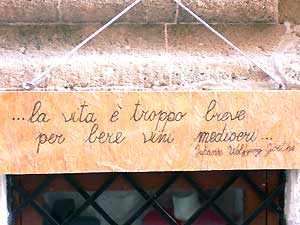 ...la vita è troppo breve
per bere vini mediocri...
Johann Wolfgang Goethe